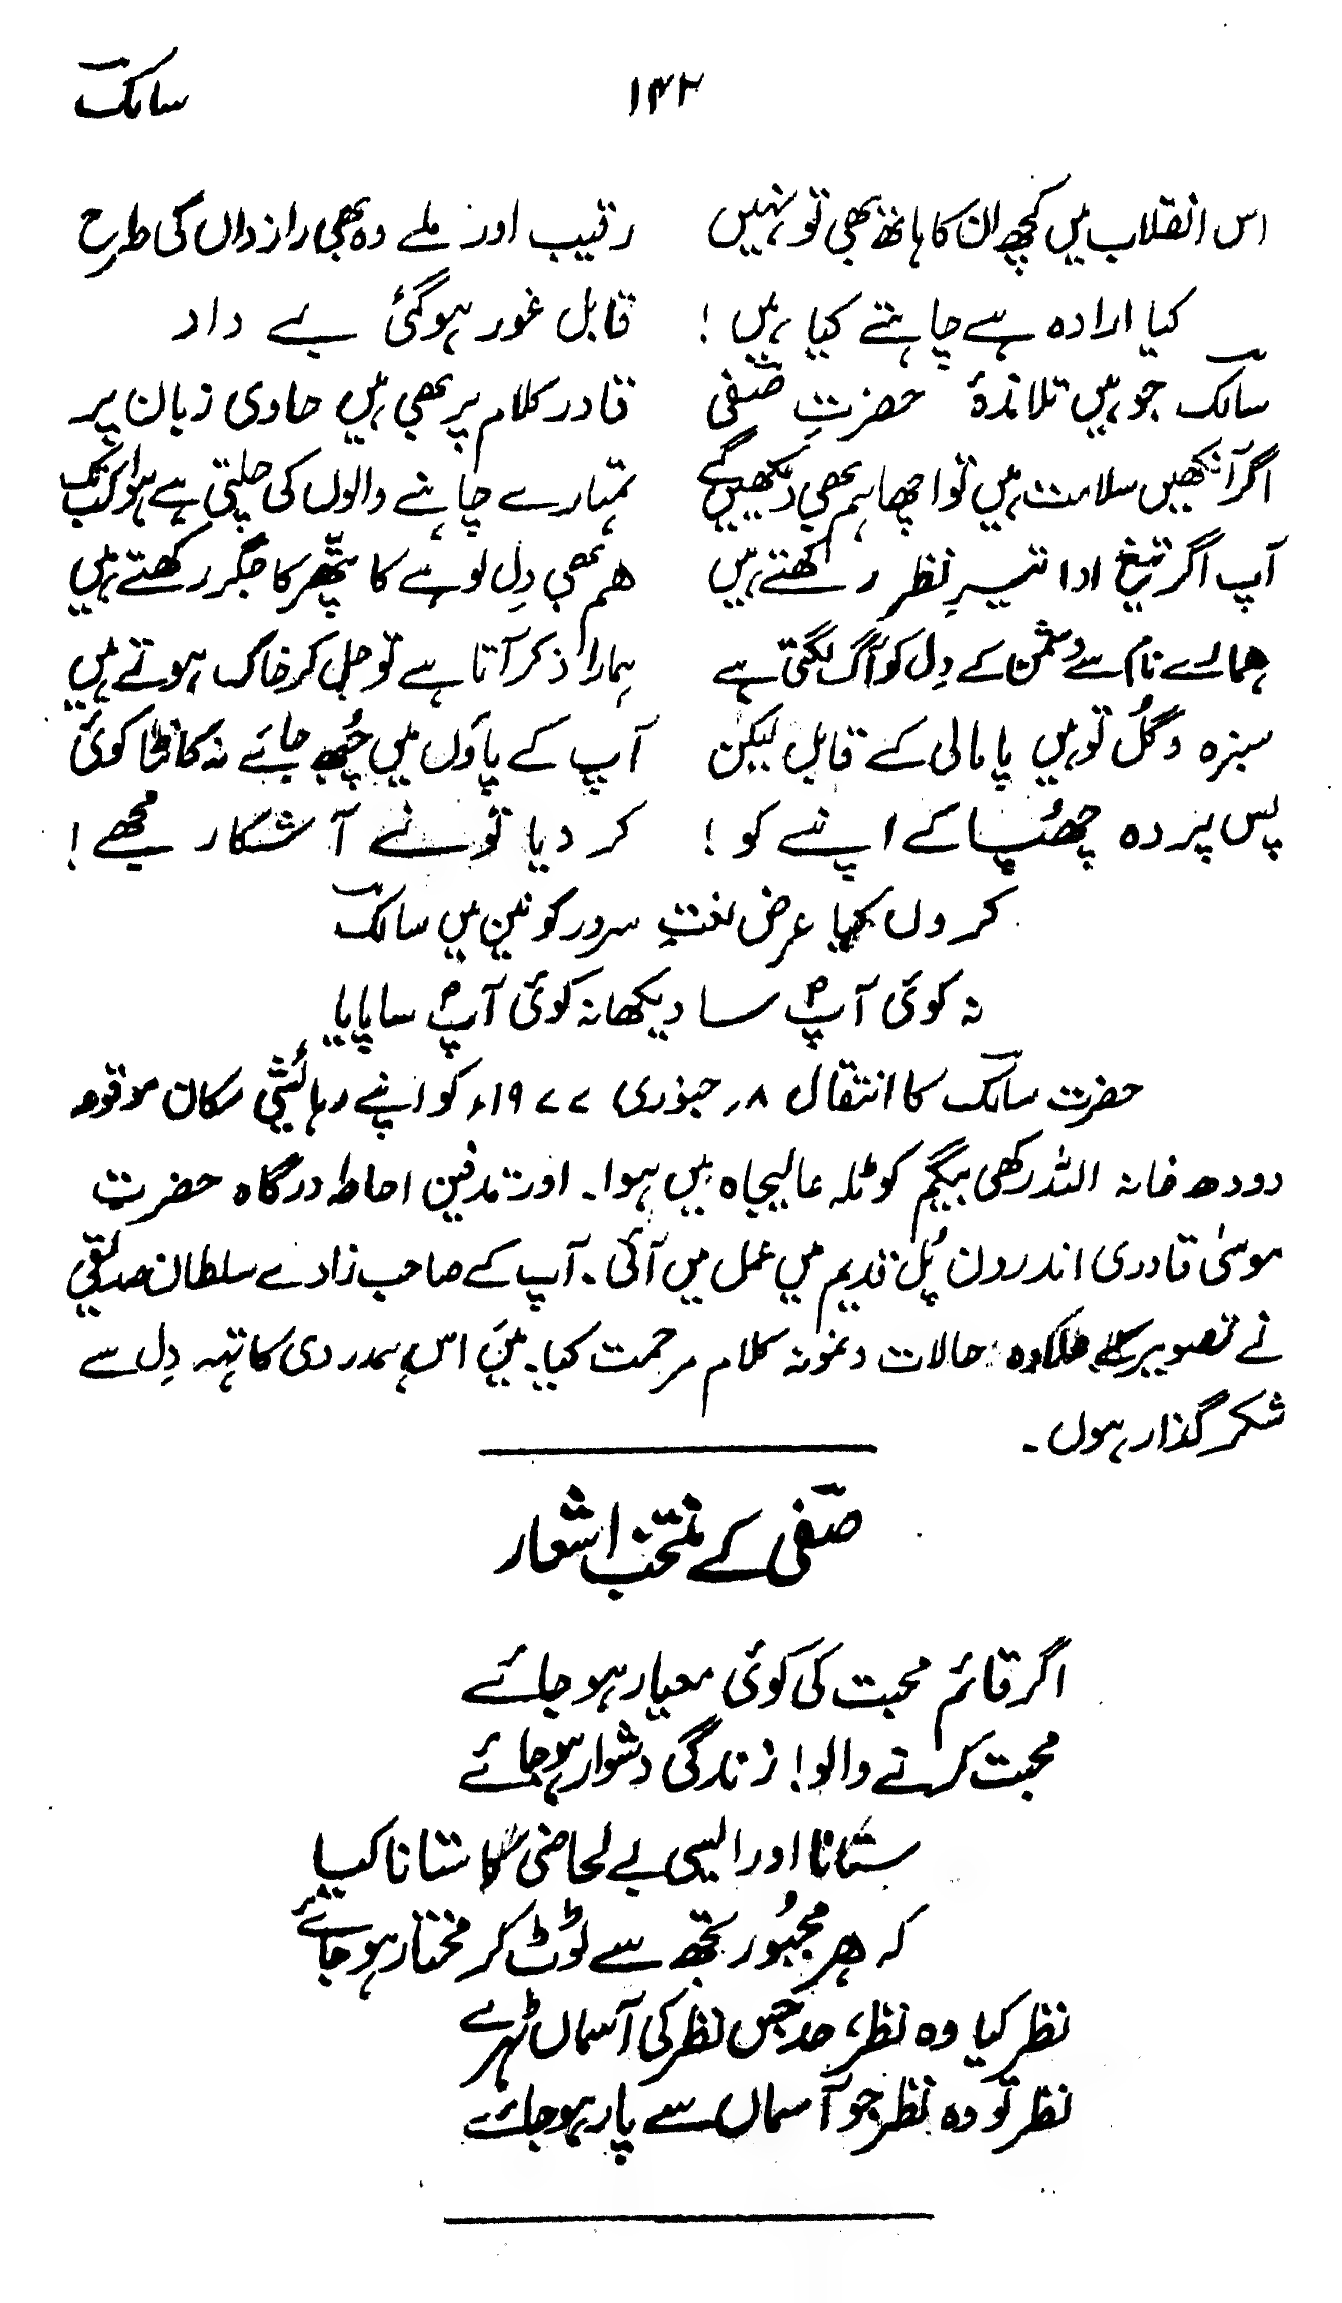 سالکؔ ۱۴۲
اس انقلاب میں کچھ ان کا ہاتھ بھی تو نہیں رقیب اور ملے وہ بھی رازداں کی طرح
کیا ارادہ ہے چاہتے کیا ہیں! قابل غور ہو گئی بے داد
سالکؔ جو ہیں تلامذۂ حضرتِ صفیؔ قادر کلام پر بھی ہیں حاوی زبان پر
اگر آنکھیں سلامت ہیں تو اچھا ہم بھی دیکھیں گے تمہارے چاہنے والوں کی چلتی ہے ہوا کب تک
آپ اگر تیغِ ادا تیرِ نظر رکھتے ہیں ہم بھی دِل لوہے کا پتھّر کا جگر رکھتے ہیں
ہمارے نام سے دشمن کے دِل کو آگ لگتی ہے ہمارا ذکر آتا ہے تو جل کر خاک ہوتے ہیں
سبزہ و گُل تو ہیں پامالی کے قابل لیکن آپ کے پاؤں میں چُبھ جائے نہ کانٹا کوئی
پس پردہ چھُپا کے اپنے کو! کر دیا تو نے آشکار مجھے!
کروں کیا عرض نعتِ سرور کونین میں سالکؔ
نہ کوئی آپؐ سا دیکھا نہ کوئی آپؐ سا پایا
حضرت سالکؔ کا انتقال ۸؍ جنوری ۱۹۷۷ء کو اپنے رہائشی مکان موقوعہ
دودھ خانہ اللہ رکھی بیگم کوٹلہ عالیجاہ میں ہوا۔ اور تدفین احاطہ درگاہ حضرت
موسیٰ قادری اندرون پُل قدیم میں عمل میں آئی۔ آپ کے صاحب زادے سلطان صدیقی
نے تصویر کے علاوہ حالات و نمونہ کلام مرحمت کیا۔ میں اس ہمدردی کا تہہ دِل سے
شکر گذار ہوں۔
صفیؔ کے منتخب اشعار
اگر قائم محبت کی کوئی معیار ہو جائے
محبت کرنے والو! زندگی دشوار ہو جائے
ستانا اور ایسی بے لحاضی کا ستانا کیا
کہ ہر مجبُور تجھ سے ٹوٹ کر مختار ہو جائے
نظر کیا وہ نظر، حد جس نظر کی آسماں ٹہرے
نظر تو وہ نظر جو آسماں سے پار ہو جائے